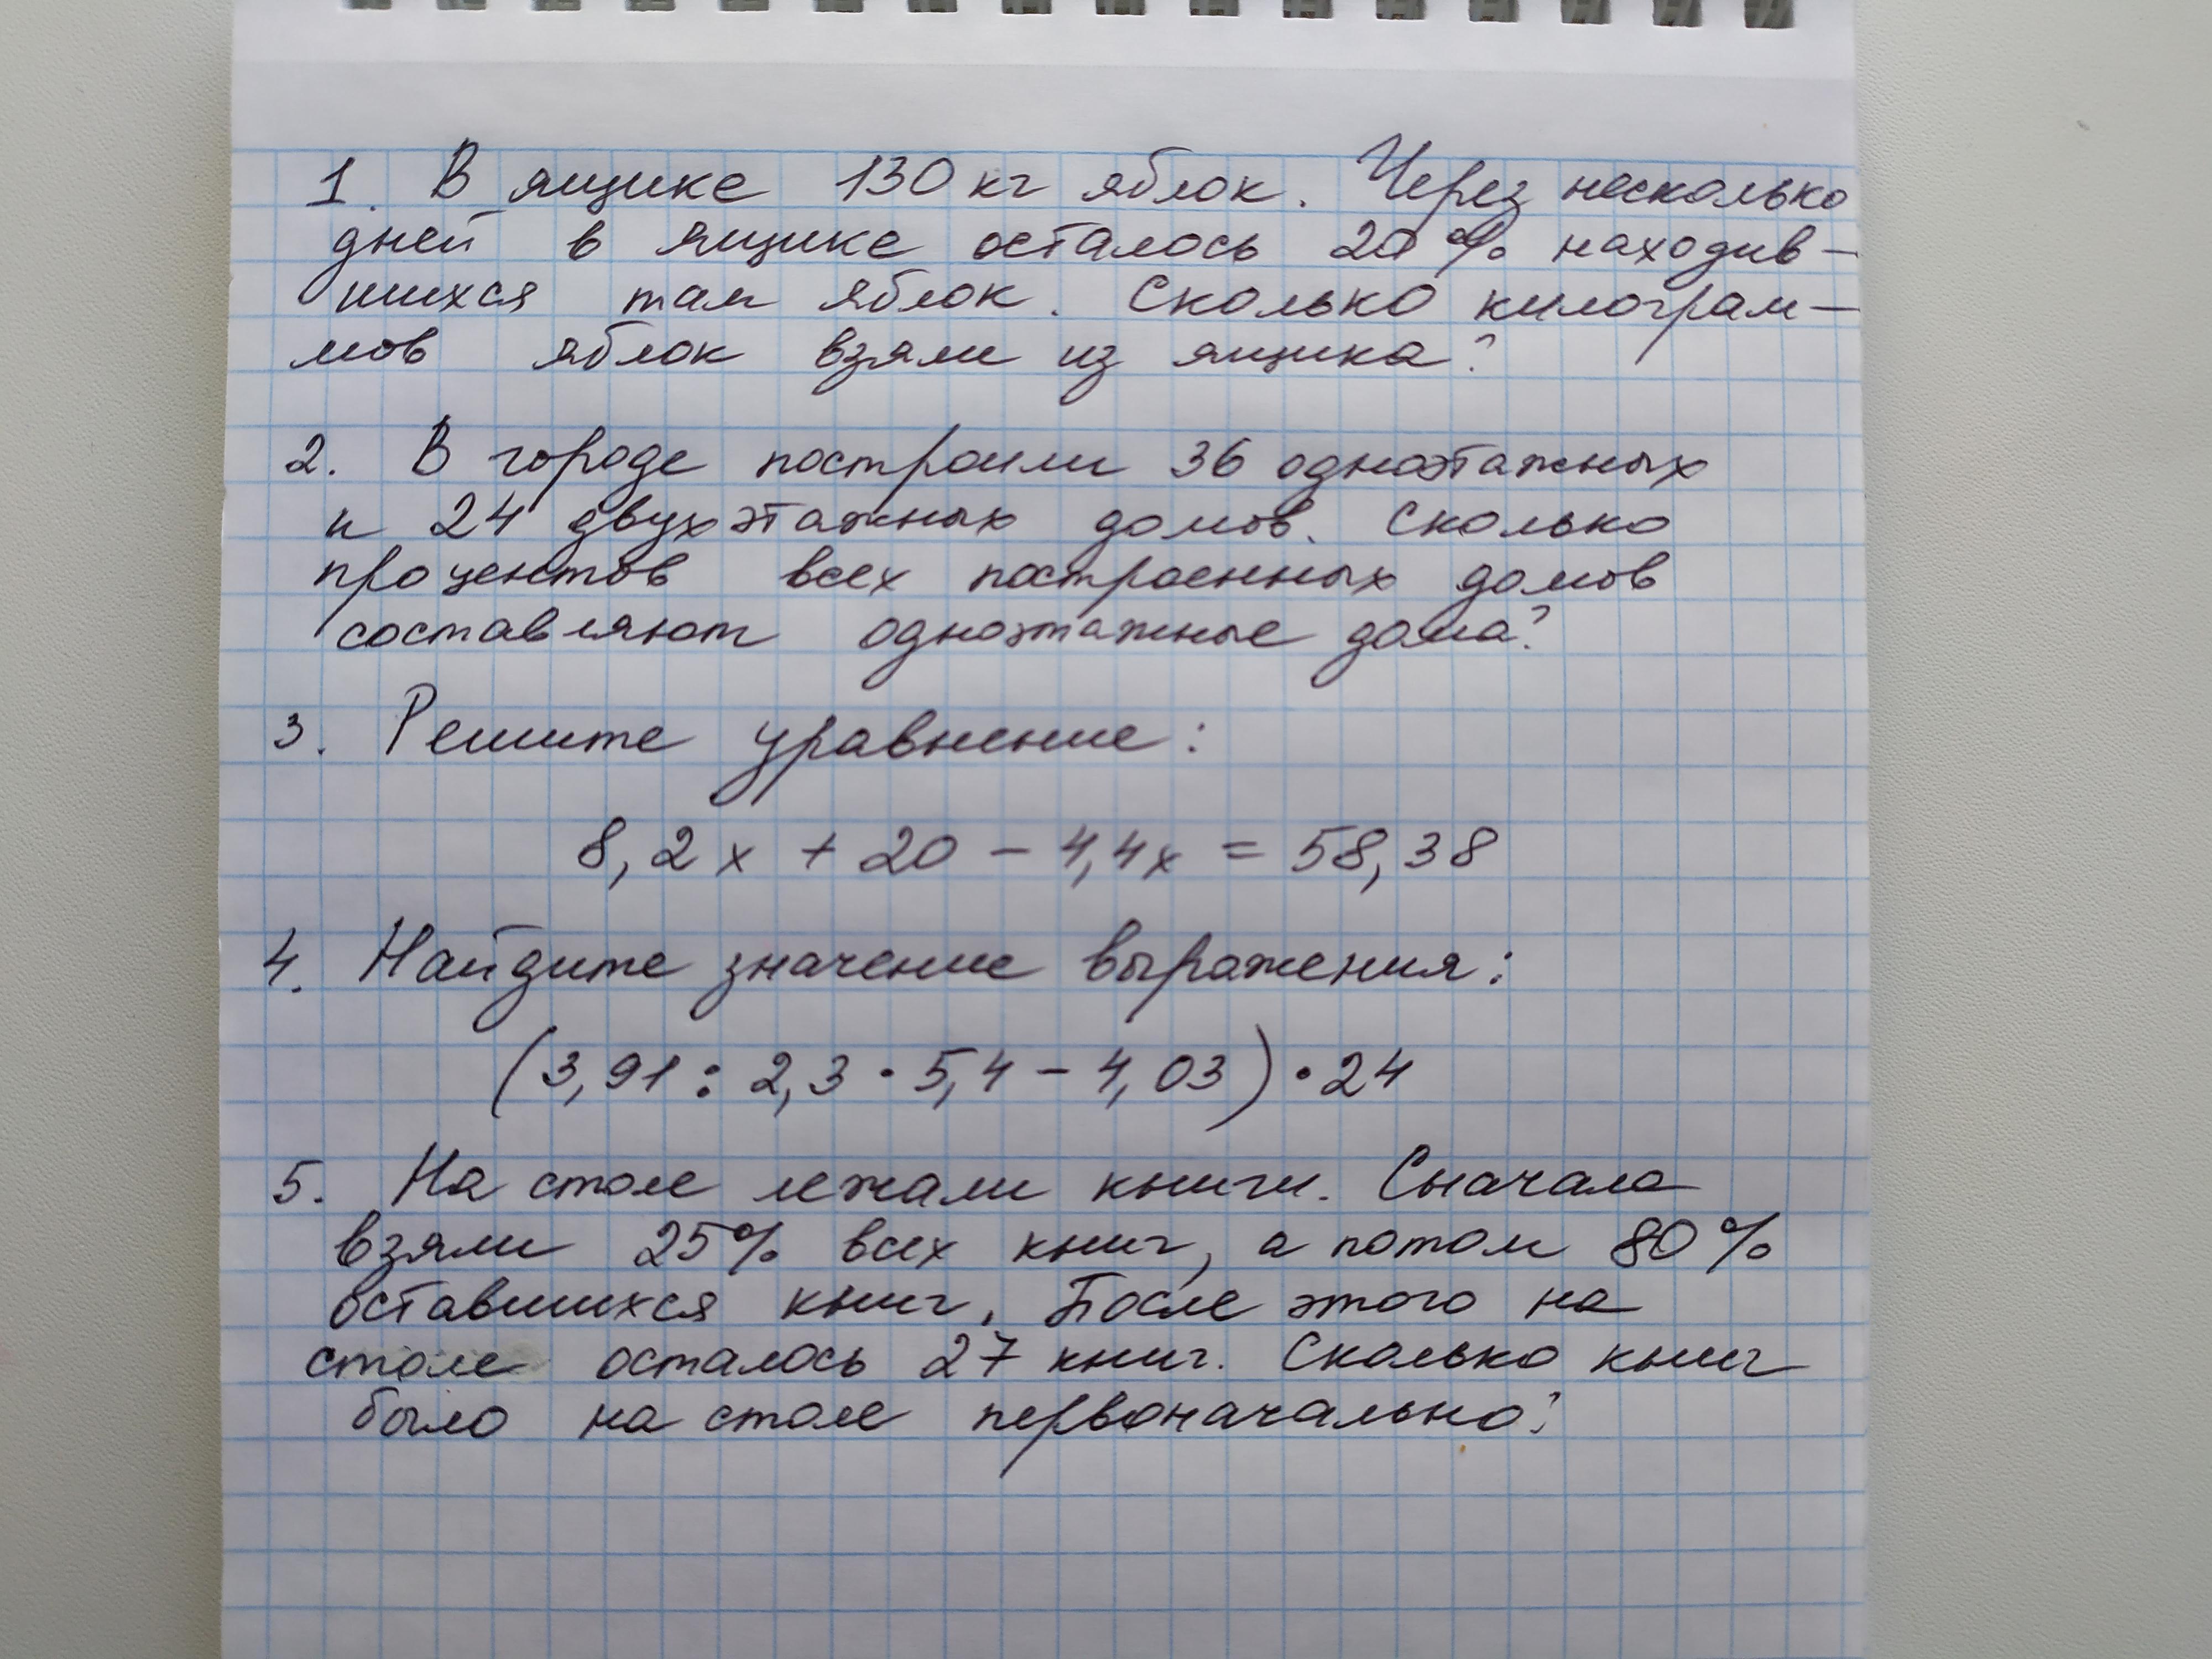 1. В ящике 130 кг яблок. Через несколько
дней в ящике осталось 20% находив-
шихся там яблок. Сколько килограм-
мов яблок взяли из ящика?
2. В городе построили 36 одноэтажных
и 24 двухэтажных домов. Сколько
процентов всех построенных домов
составляют одноэтажные дома?
3. Решите уравнение:
8,2x + 20 - 4,4x = 58,38
4. Найдите значение выражения:
(3,91 : 2,3 • 5,4 - 4,03) • 24
5. На столе лежали книги. Сначала
взяли 25% всех книг, а потом 80%
оставшихся книг. После этого на
столе осталось 27 книг. Сколько книг
было на столе первоначально?